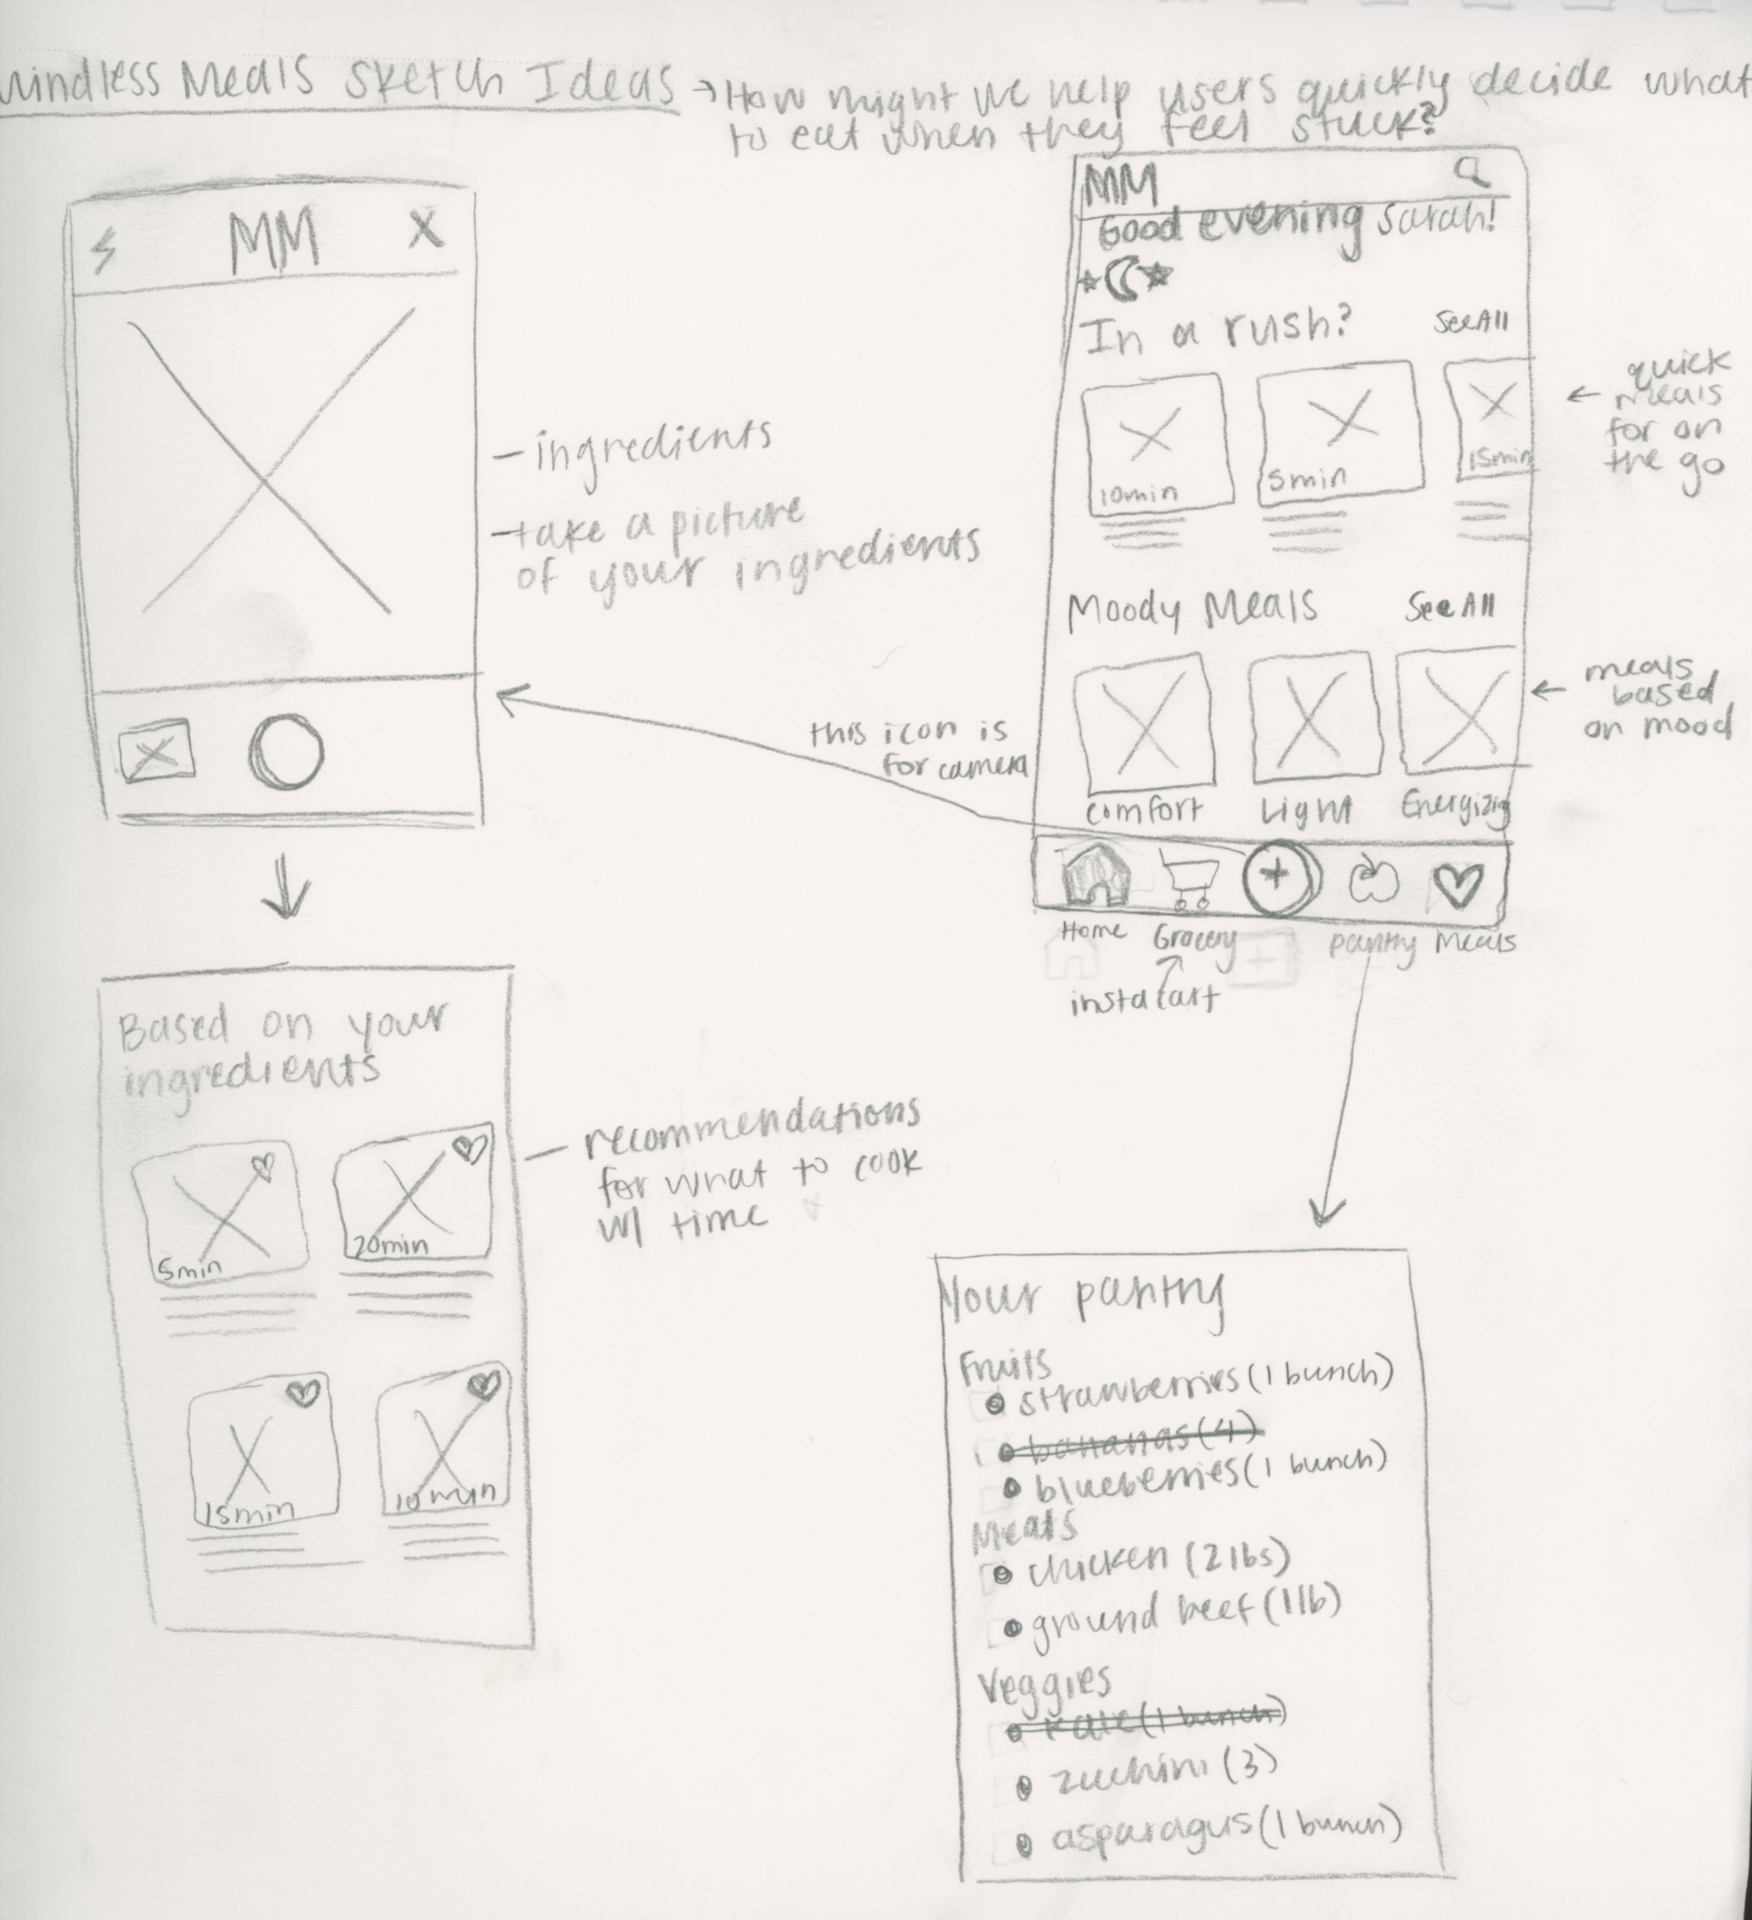 Mindless Meals Sketch Ideas → How might we help users quickly decide what
to eat when they feel stuck?
MM X
- ingredients
- take a picture
of your ingredients
MM
Good evening Sarah!
In a rush? See All
10min 5min 15min
← quick
meals
for on
the go
Moody Meals See All
← meals
based
on mood
Comfort Light Energizig
this icon is
for camera
Home Grocery Pantry Meals
instacart
Based on your
ingredients
5min 20min
15min 10min
- recommendations
for what to cook
w/ time
Your pantry
Fruits
• strawberries (1 bunch)
• bananas (4)
• blueberries (1 bunch)
Meats
• chicken (2 lbs)
• ground beef (1 lb)
Veggies
• kale (1 bunch)
• zucchini (3)
• asparagus (1 bunch)